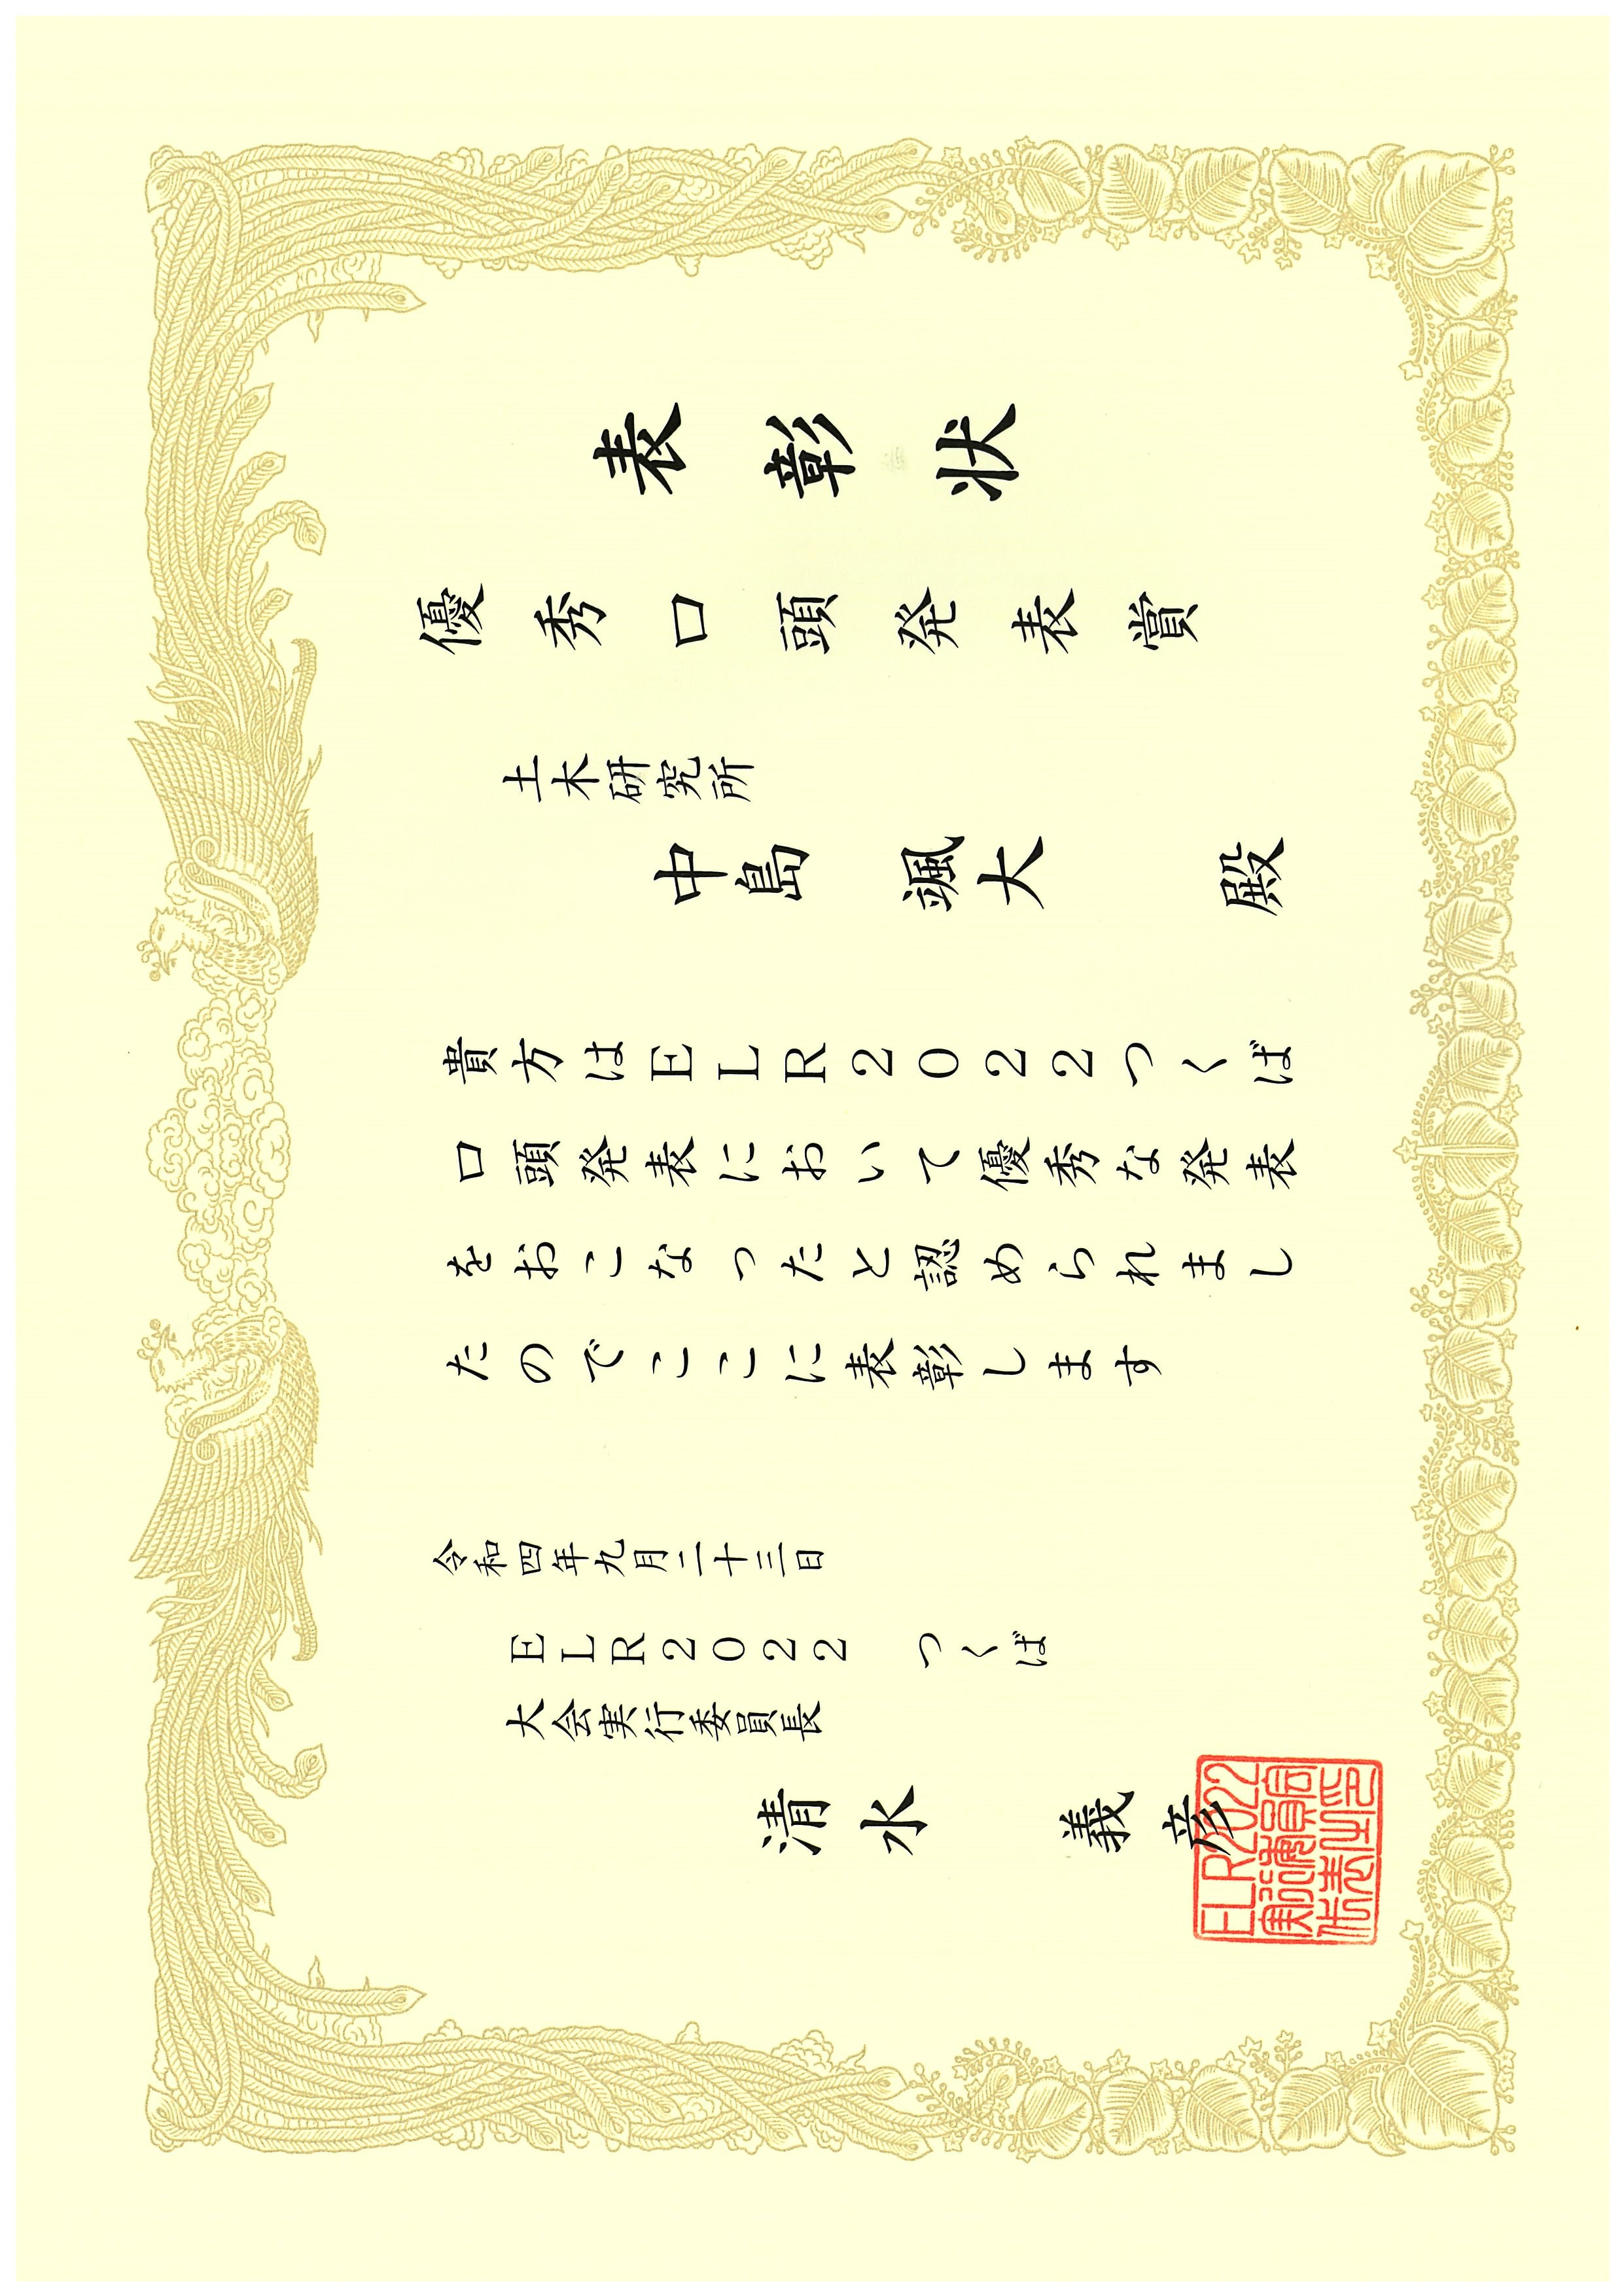 表彰状
優秀口頭発表賞
土木研究所
中島 颯大 殿
貴方はELR2022つくば
口頭発表において優秀な発表
をおこなったと認められまし
たのでここに表彰します
令和四年九月二十三日
ELR2022 つくば
大会実行委員長
清水 義彦
ELR2022